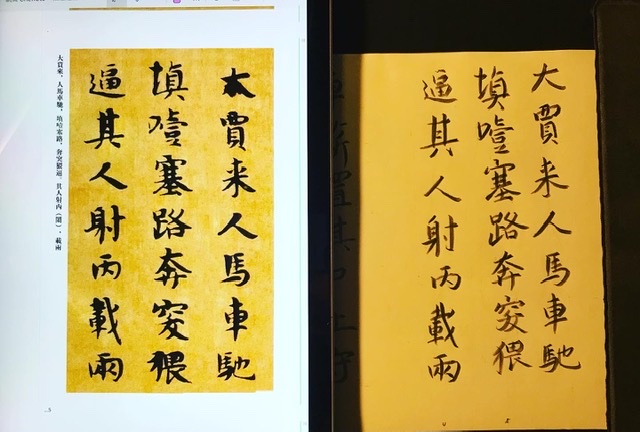 大賈來、人馬車馳、填噎塞路、奔突猥逼、其人射内（閙）、載兩
大賈来人馬車馳
填噎塞路奔突猥
逼其人射丙載兩
大賈来人馬車馳
填噎塞路奔突猥
逼其人射丙載兩